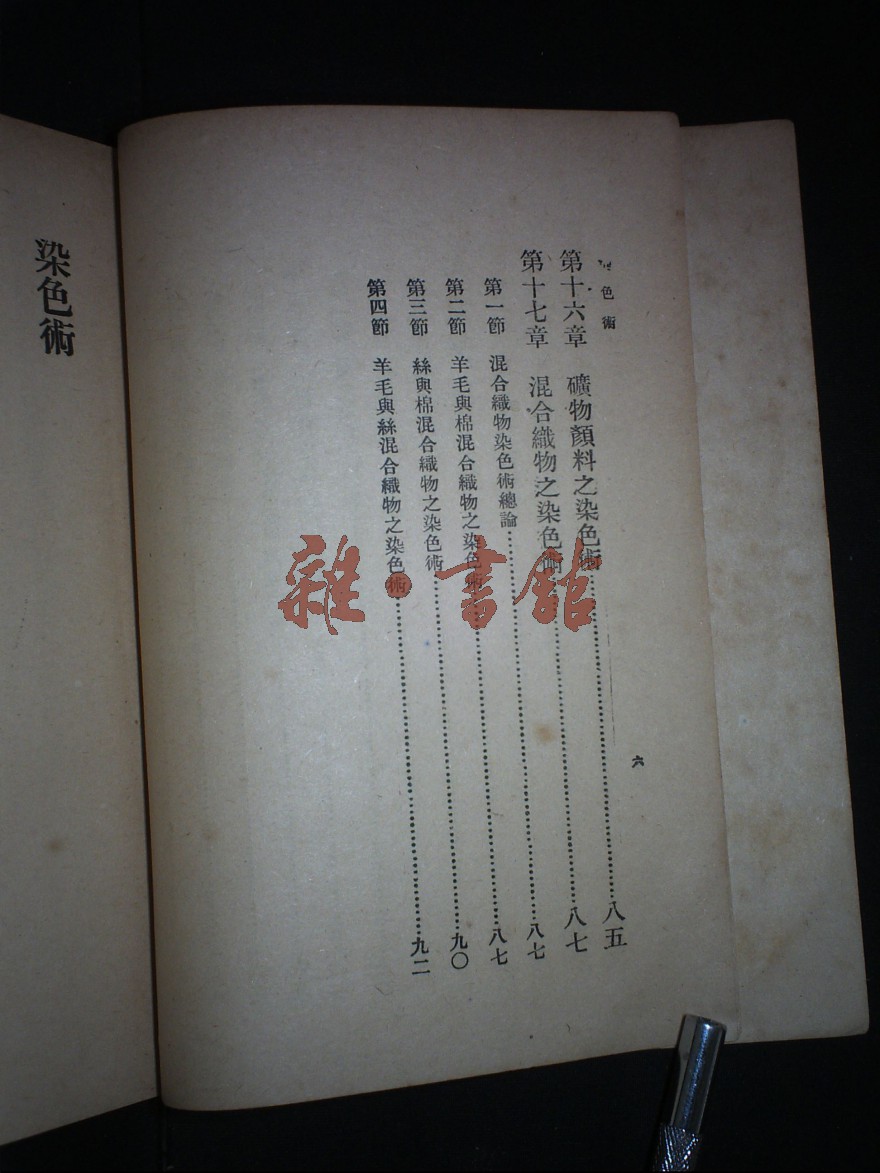 色術
六
第十六章 礦物顏料之染色術……八五
第十七章 混合織物之染色術……八七
第一節 混合織物染色術總論……八七
第二節 羊毛與棉混合織物之染色術……八七
第三節 絲與棉混合織物之染色術……九〇
第四節 羊毛與絲混合織物之染色術……九二
染色術
雜·書館